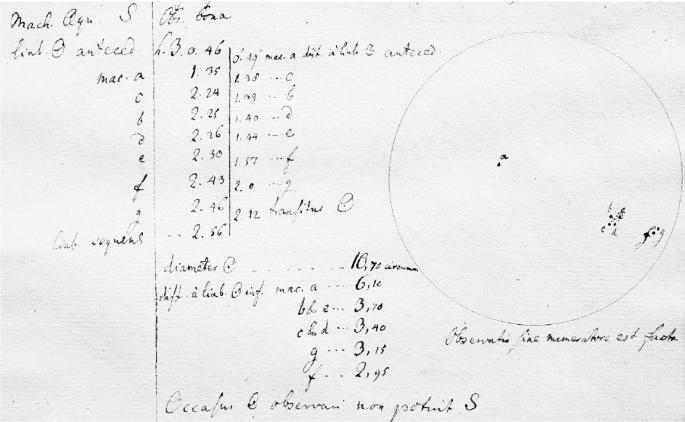 Mach. Aqu. S Obs. bona
limb. ☉ anteced. h. 3. 0. 46 0. 49 mac. a dist. à limb ☉ anteced.
mac. a 1. 35 1. 38 ... c
c 2. 24 1. 39 ... b
b 2. 25 1. 40 ... d
d 2. 26 1. 44 ... e
e 2. 30 1. 57 ... f
f 2. 43 2. 0 ... g
g 2. 46 2. 12 transitus ☉
limb. sequens .. 2. 56
a
b e
c d
f g
diameter ☉ ........ 10,70 circum
dist. à limb. ☉ inf. mac. a ... 6,10
b & e ... 3,70
c & d ... 3,40
g ... 3,15
f ... 2,95
Observatio sine numeratore est facta
Occasus ☉ observari non potuit S